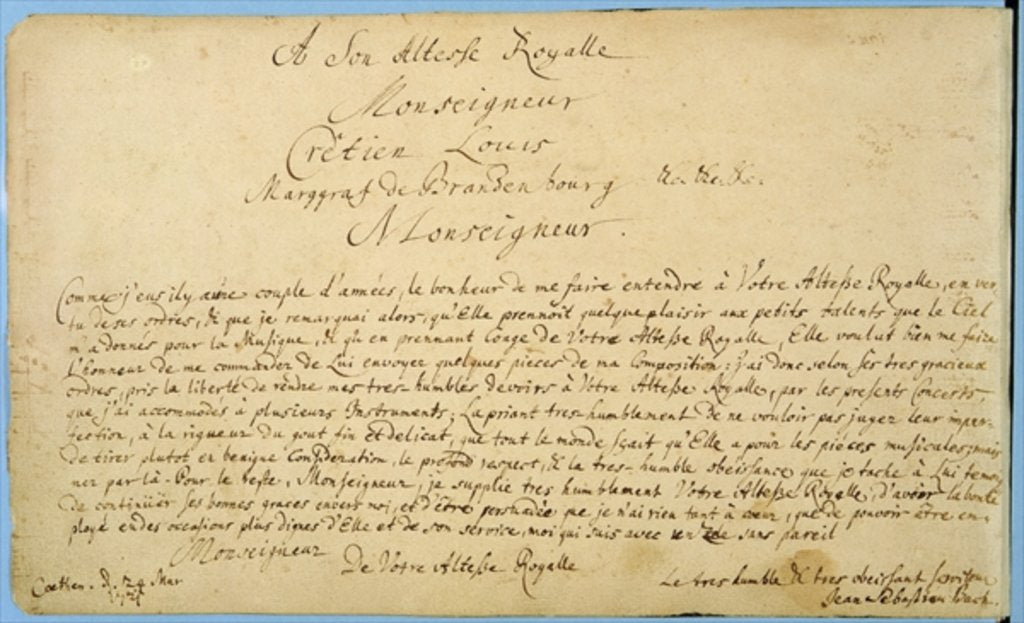 A Son Altesse Royalle
Monseigneur
Crêtien Louis
Marggraf de Brandenbourg &c. &c. &c.
Monseigneur.
Comme j'eus il y a une couple d'années, le bonheur de me faire entendre à Votre Alteße Royalle, en ver-
tu de ses ordres, & que je remarquai alors, qu'Elle prennoit quelque plaisir aux petits talents que le Ciel
m'a donnés pour la Musique, & qu'en prennant Conge de Votre Alteße Royalle, Elle voulut bien me faire
l'honneur de me commander de Lui envoyer quelques pieces de ma Composition: j'ai donc selon ses tres gracieux
ordres, pris la liberté de rendre mes tres-humbles devoirs à Votre Alteße Royalle, par les presents Concerts,
que j'ai accommodés à plusieurs Instruments; La priant tres-humblement de ne vouloir pas juger leur imper-
fection, à la rigueur du gout fin et delicat, que tout le monde sçait qu'Elle a pour les pièces musicales; mais
de tirer plutot en benigne Consideration, le profond respect, & la tres-humble obeissance que je tache à Lui temoi-
ner par là. Pour le reste, Monseigneur, je supplie tres humblement Votre Alteße Royalle, d'avoir la bonté
de continüer ses bonnes graces envers moi, et d'être persuadée que je n'ai rien tant à cœur, que de pouvoir être em-
ployé en des occasions plus dignes d'Elle et de son service, moi qui suis avec un zele sans pareil
Monseigneur
De Votre Alteße Royalle
Coethen. d. 24 Mar
1721
Le tres humble & tres obeissant serviteur
Jean Sebastien Bach.